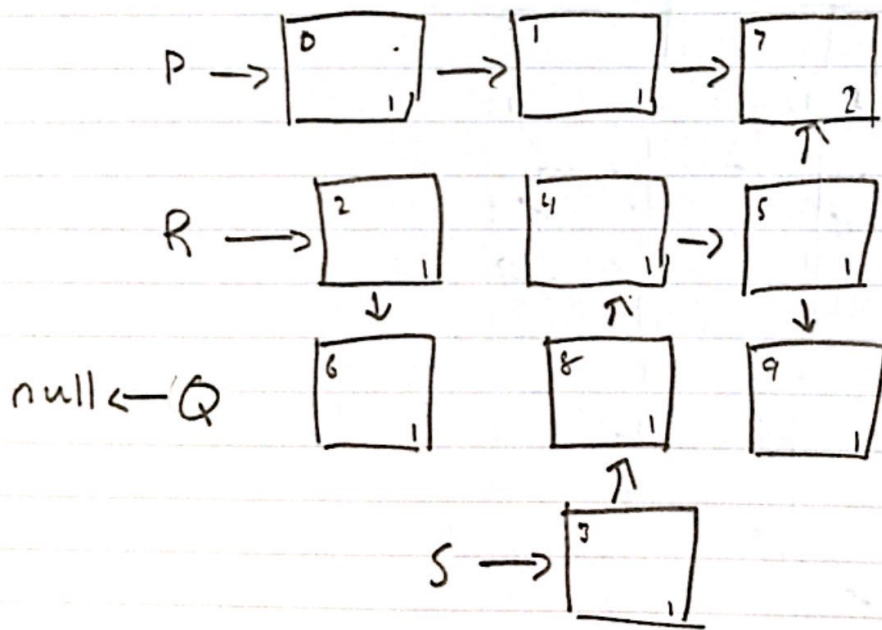 P → 0 1 → 1 1 → 7 2
R → 2 1 4 1 → 5 1
null ← Q 6 1 8 1 9 1
S → 3 1